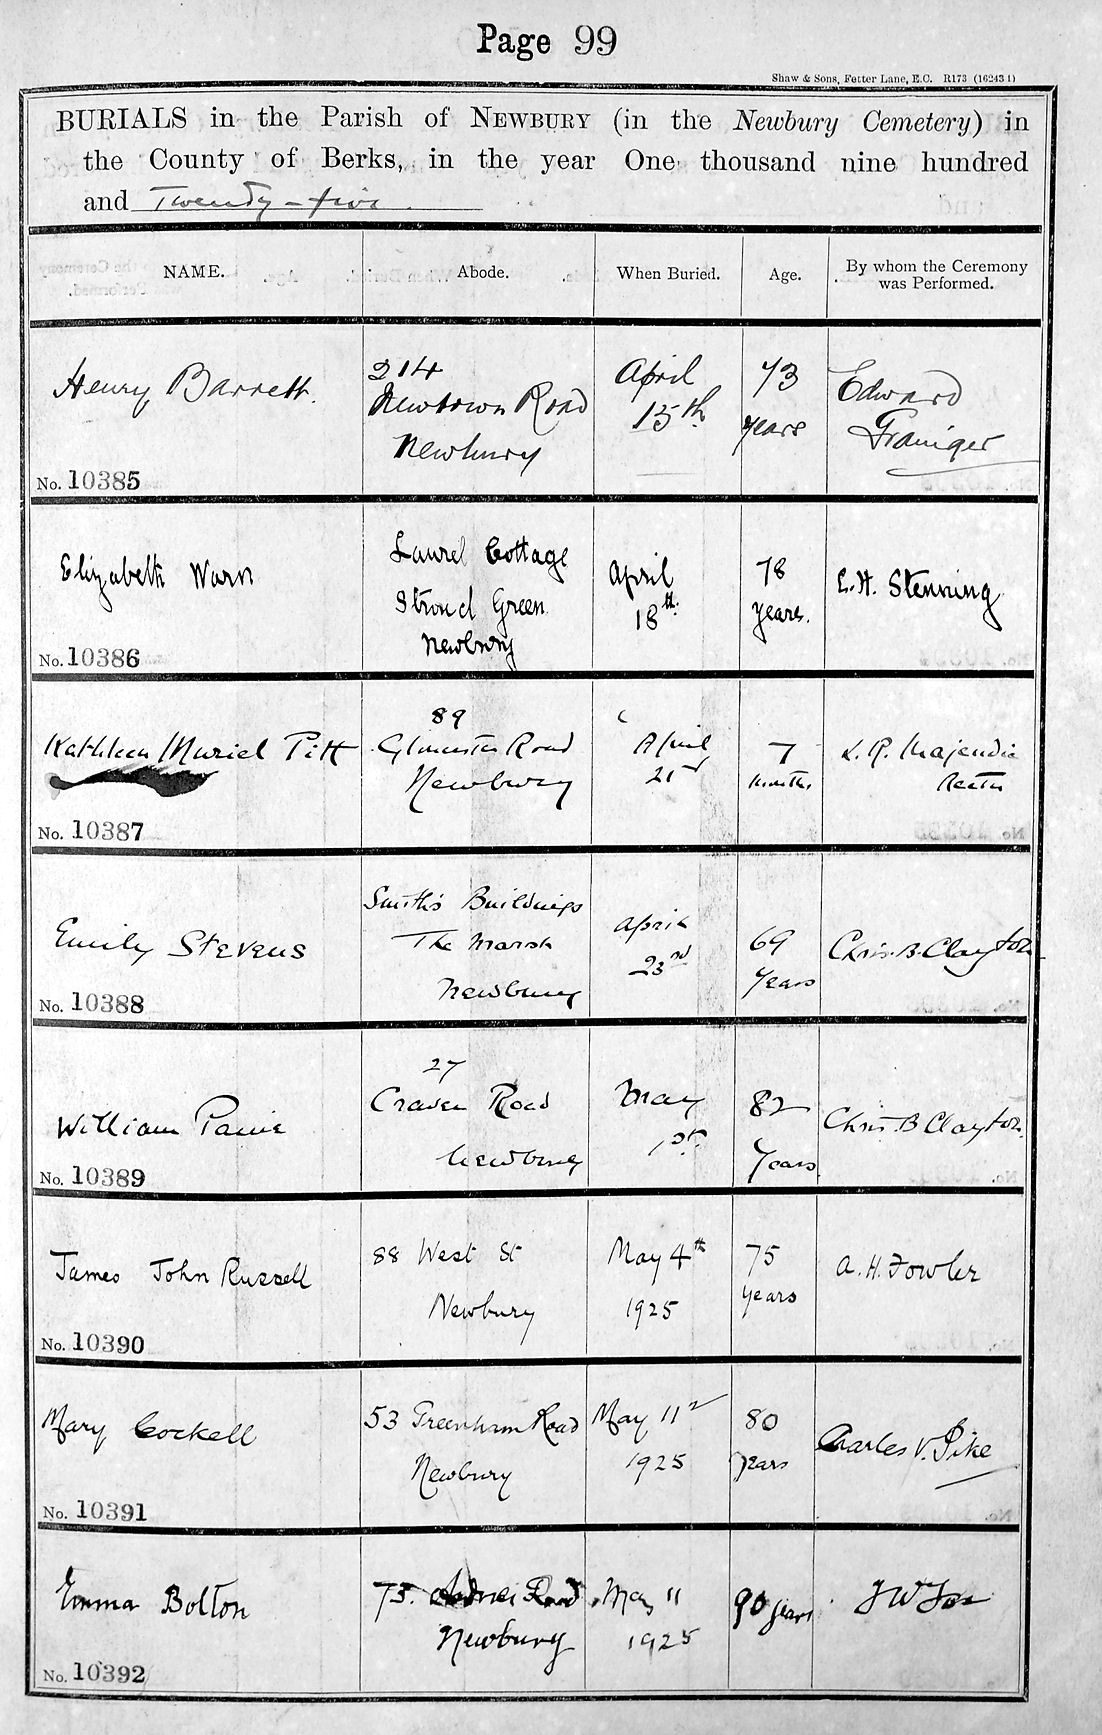 Page 99
Shaw & Sons, Fetter Lane, E.C. R173 (16243 1)
BURIALS in the Parish of NEWBURY (in the Newbury Cemetery) in
the County of Berks, in the year One thousand nine hundred
and Twenty-five.
NAME. Abode. When Buried. Age. By whom the Ceremony was Performed.
Henry Barrett.
214
Newtown Road
Newbury
April
15th
73
years
Edward
Grainger
No. 10385
Elizabeth Warn
Laurel Cottage
Stroud Green
Newbury
April
18th
78
years.
E. H. Stenning
No. 10386
Kathleen Muriel Pitt
89
Gloucester Road
Newbury
April
21st
7
months
L. R. Majendie
Rector
No. 10387
Emily Stevens
Smith's Buildings
The Marsh
Newbury
April
23rd
69
years
Chris. B. Clayton
No. 10388
William Paine
27
Craven Road
Newbury
May
1st
82
years
Chris. B Clayton.
No. 10389
James John Russell
88 West St
Newbury
May 4th
1925
75
years
A. H. Fowler
No. 10390
Mary Cockell
53 Greenham Road
Newbury
May 11
1925
80
years
Charles V. Pike
No. 10391
Emma Bolton
75. Road
Newbury
May 11
1925
90 years
J W Fox
No. 10392